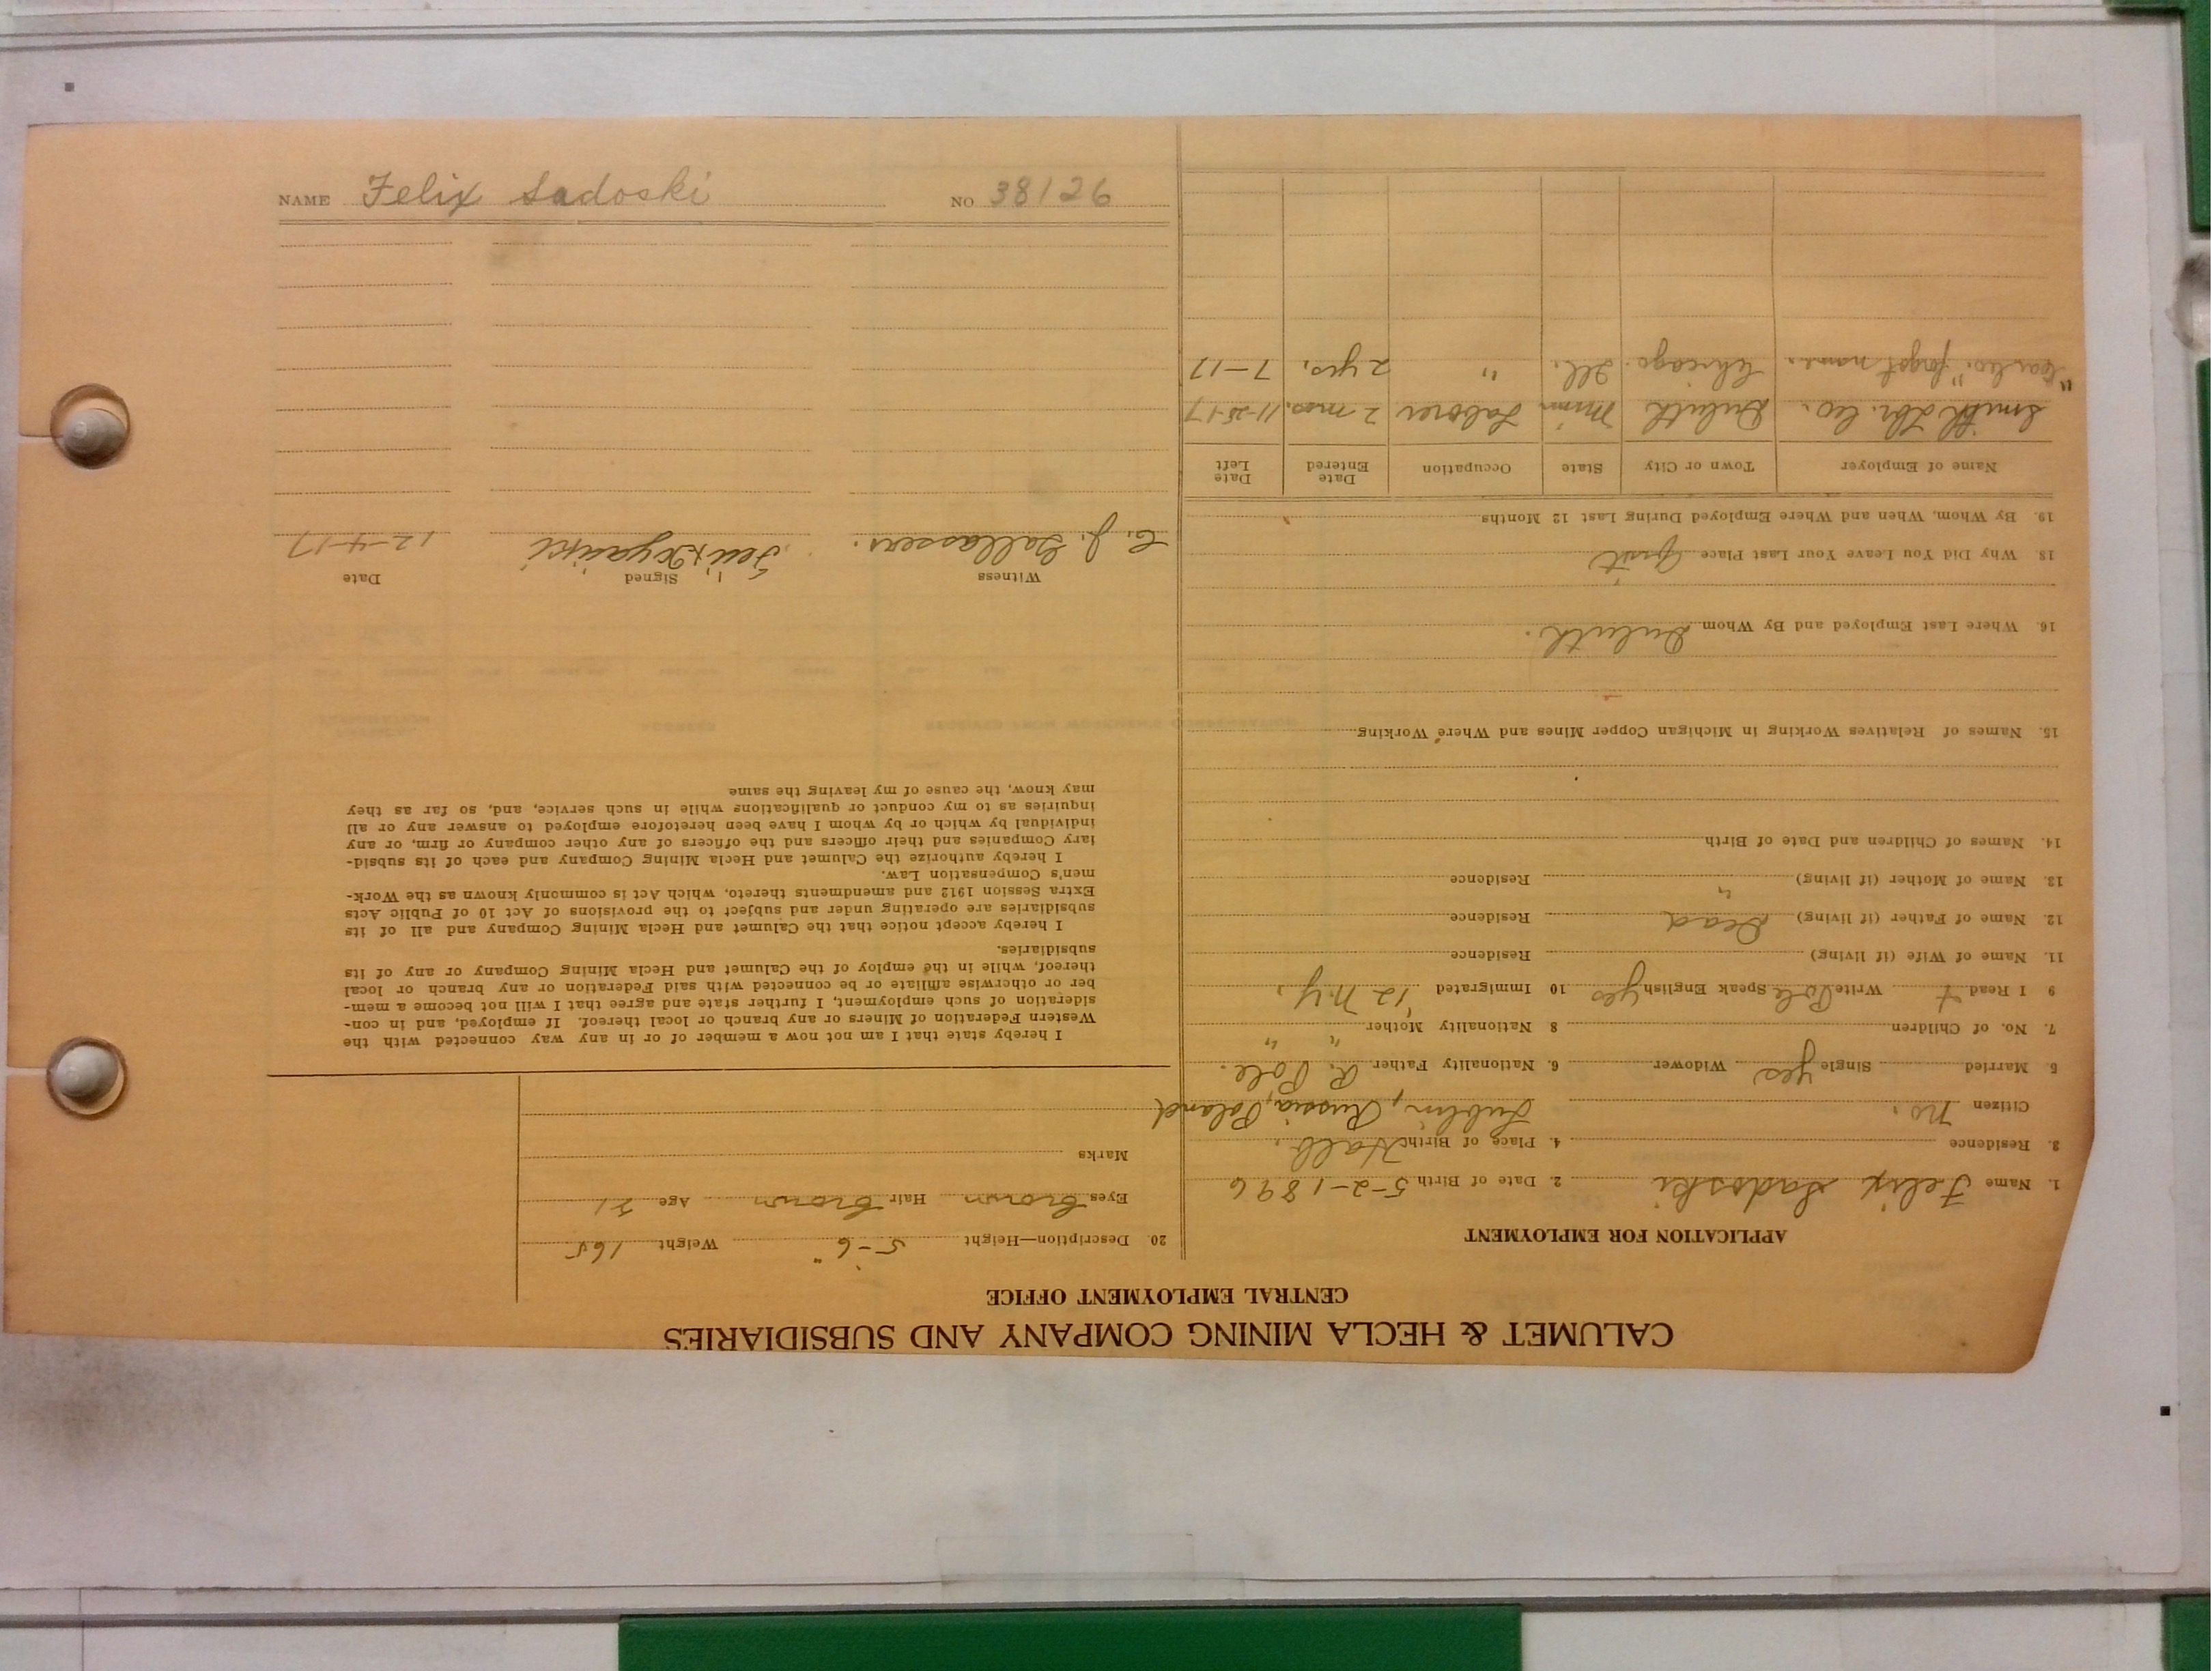 CALUMET & HECLA MINING COMPANY AND SUBSIDIARIES
CENTRAL EMPLOYMENT OFFICE
APPLICATION FOR EMPLOYMENT
1. Name Felix Sadoski 2. Date of Birth 5-2-1896
3. Residence 4. Place of Birth
Citizen no. Lublin, Russia, Poland
5. Married Single yes Widower 6. Nationality Father R. Pole.
7. No. of Children 8 Nationality Mother " "
9 I Read + Write Pole Speak English yes 10 Immigrated '12 N.Y.
11. Name of Wife (if living) Residence
12. Name of Father (if living) Dead Residence
13. Name of Mother (if living) " Residence
14. Names of Children and Date of Birth
15. Names of Relatives Working in Michigan Copper Mines and Where Working
16. Where Last Employed and By Whom Duluth.
18. Why Did You Leave Your Last Place Quit
19. By Whom, When and Where Employed During Last 12 Months
Name of Employer Town or City State Occupation Date Entered Date Left
Smith Lbr. Co. Duluth Minn Laborer 2 mos. 11-25-17
"Car Co." forgot name. Chicago. Ill. " 2 yrs. 7-17
20. Description—Height 5'-6" Weight 165
Eyes brown Hair brown Age 21
Marks
I hereby state that I am not now a member of or in any way connected with the
Western Federation of Miners or any branch or local thereof. If employed, and in con-
sideration of such employment, I further state and agree that I will not become a mem-
ber or otherwise affiliate or be connected with said Federation or any branch or local
thereof, while in the employ of the Calumet and Hecla Mining Company or any of its
subsidiaries.
I hereby accept notice that the Calumet and Hecla Mining Company and all of its
subsidiaries are operating under and subject to the provisions of Act 10 of Public Acts
Extra Session 1912 and amendments thereto, which Act is commonly known as the Work-
men's Compensation Law.
I hereby authorize the Calumet and Hecla Mining Company and each of its subsid-
iary Companies and their officers and the officers of any other company or firm, or any
individual by which or by whom I have been heretofore employed to answer any or all
inquiries as to my conduct or qualifications while in such service, and, so far as they
may know, the cause of my leaving the same
Witness Signed Date
C. J. 12-4-17
NAME Felix Sadoski NO 38126